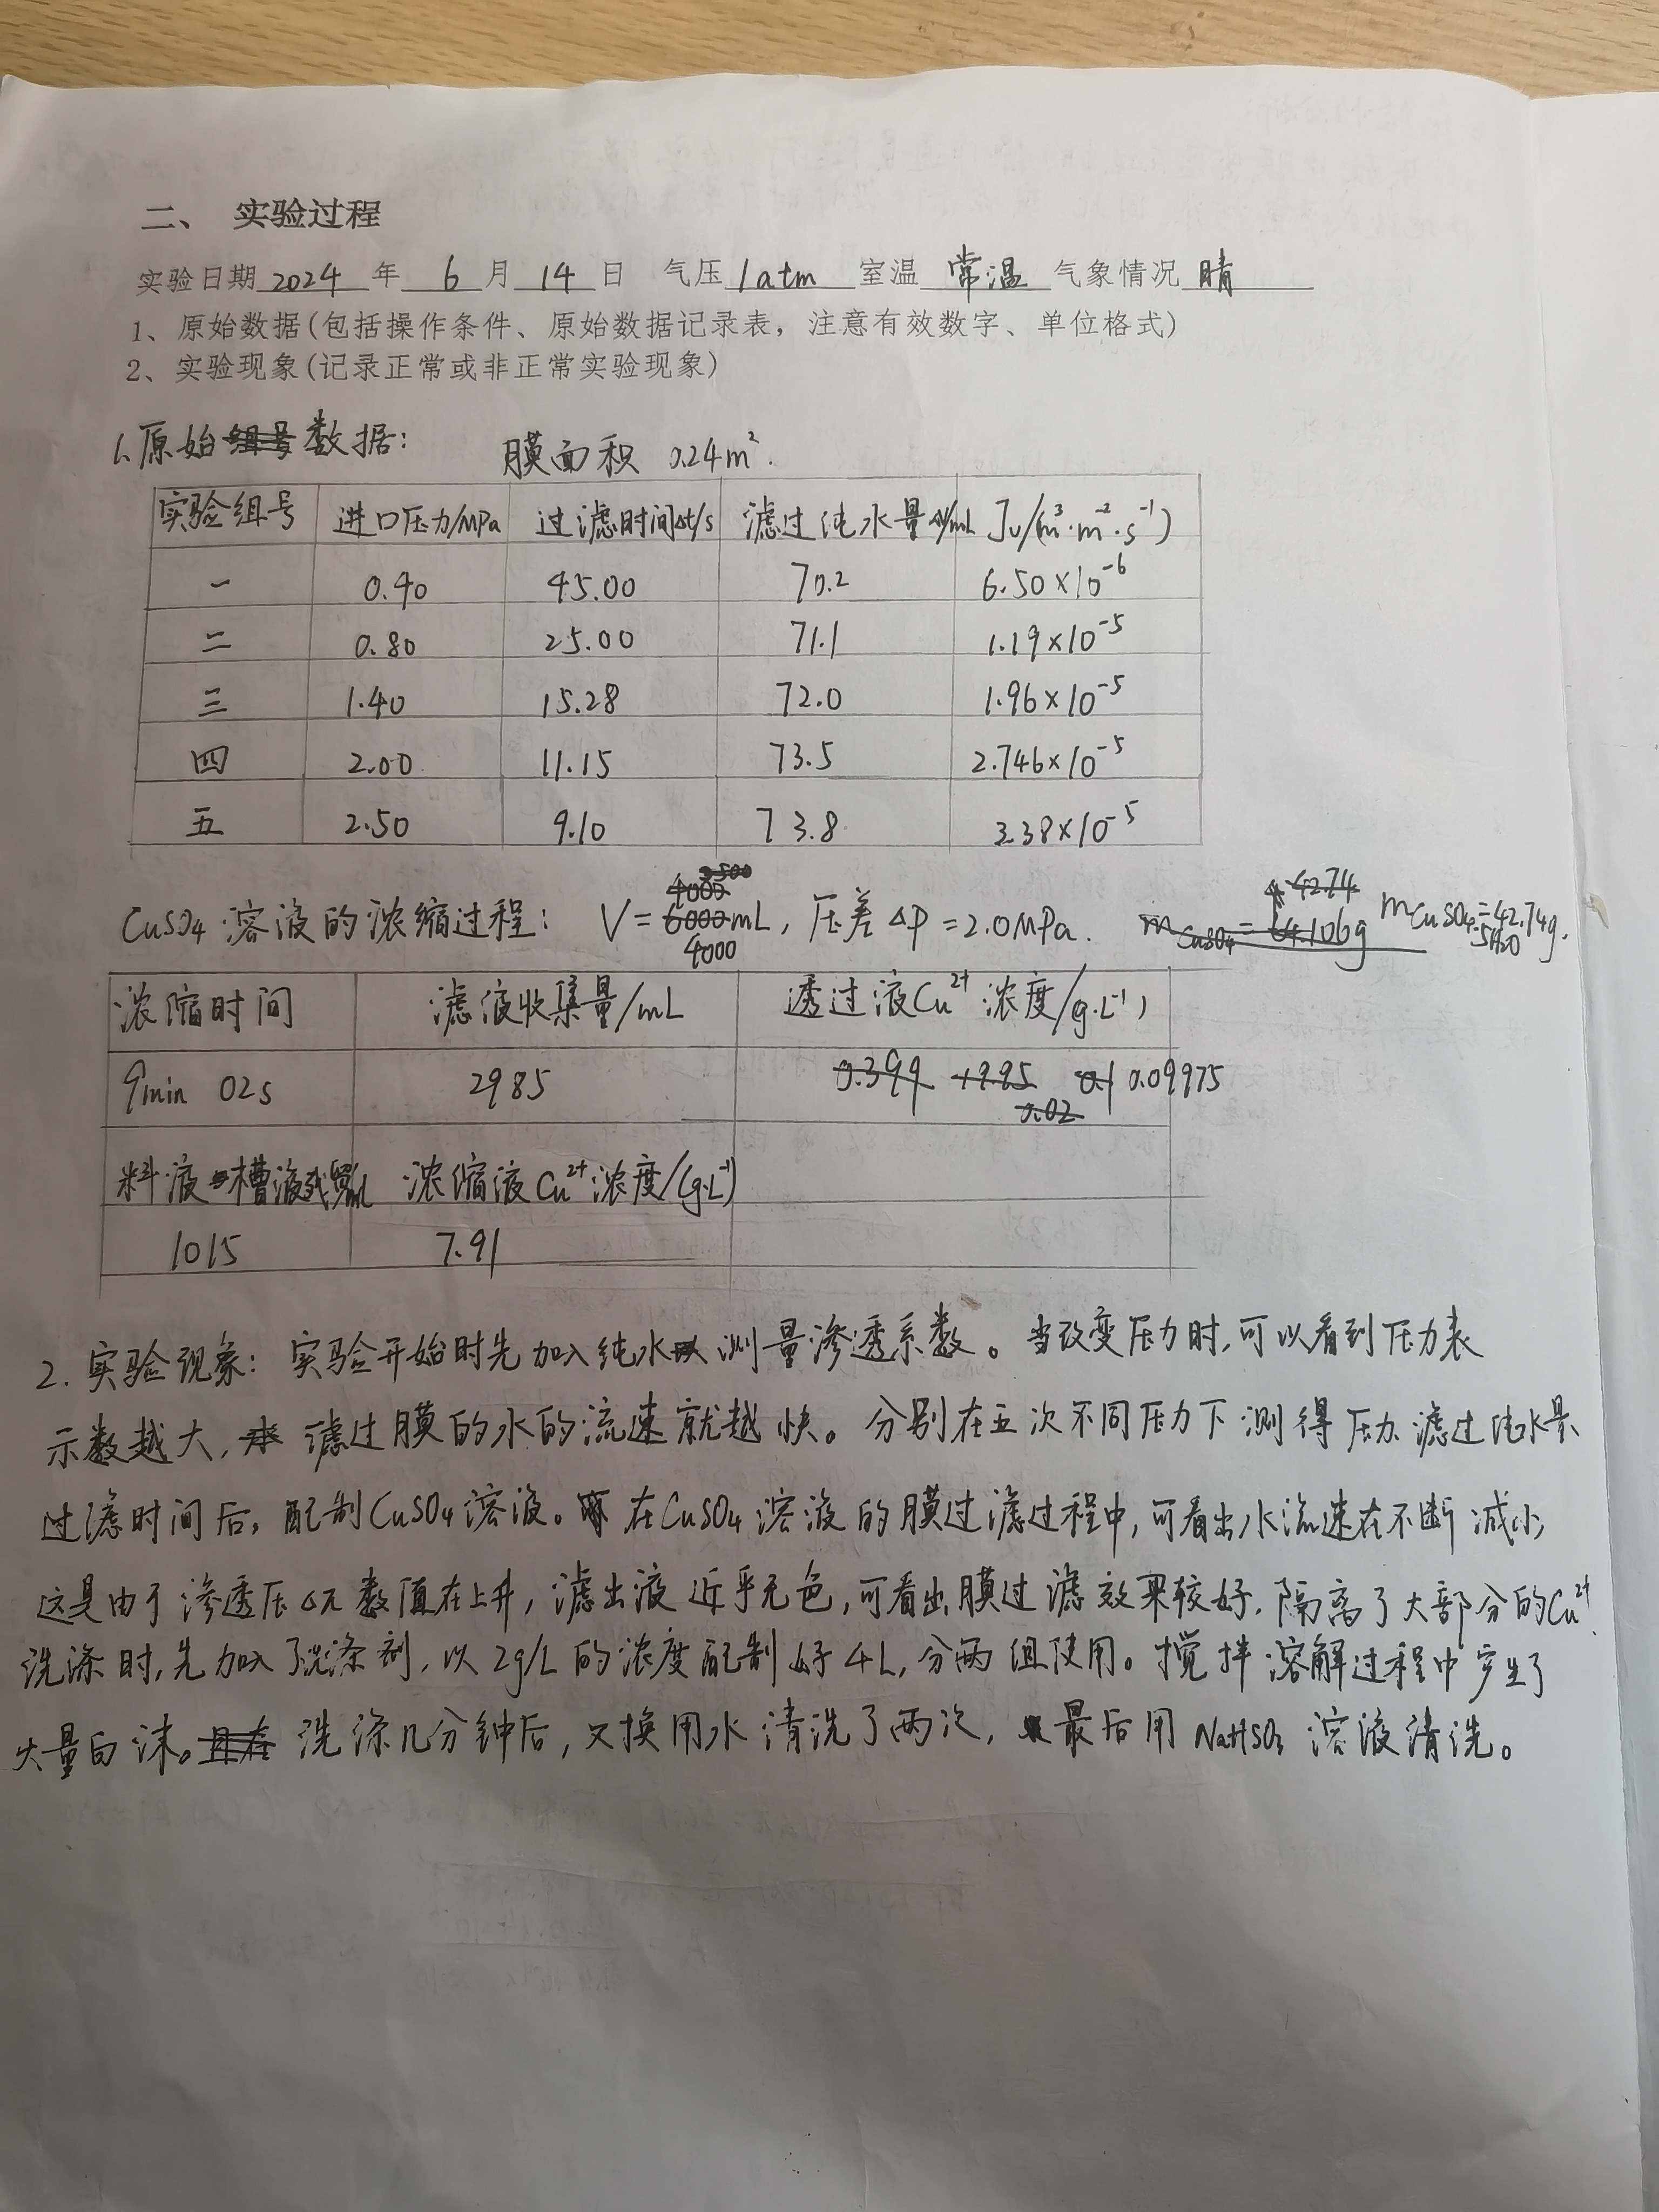 二、 实验过程
实验日期 2024 年 6 月 14 日 气压 1atm 室温 常温 气象情况 晴
1、原始数据(包括操作条件、原始数据记录表，注意有效数字、单位格式)
2、实验现象(记录正常或非正常实验现象)
1、原始组号数据： 膜面积 0.24m².
实验组号 进口压力/MPa 过滤时间Δt/s 滤过纯水量ΔV/mL Jv/(m³·m⁻²·s⁻¹)
一 0.40 45.00 70.2 6.50×10⁻⁶
二 0.80 25.00 71.1 1.19×10⁻⁵
三 1.40 15.28 72.0 1.96×10⁻⁵
四 2.00 11.15 73.5 2.746×10⁻⁵
五 2.50 9.10 73.8 3.38×10⁻⁵
3500
4000 42.74
CuSO₄溶液的浓缩过程： V=6000mL, 压差ΔP=2.0MPa. mCuSO₄=64.106g mCuSO₄·5H₂O=42.74g.
4000
浓缩时间 滤液收集量/mL 透过液Cu²⁺浓度/(g·L⁻¹)
9min 02s 2985 0.399 19.95 0.1 0.09975
0.02
料液槽液残留/mL 浓缩液Cu²⁺浓度/(g·L⁻¹)
1015 7.91
2. 实验现象：实验开始时先加入纯水以测量渗透系数。当改变压力时,可以看到压力表
示数越大,水滤过膜的水的流速就越快。分别在五次不同压力下测得压力、滤过纯水量、
过滤时间后,配制CuSO₄溶液。在CuSO₄溶液的膜过滤过程中,可看出水流速在不断减小,
这是由于渗透压Δπ数值在上升,滤出液近乎无色,可看出膜过滤效果较好.隔离了大部分的Cu²⁺.
洗涤时,先加入了洗涤剂,以2g/L的浓度配制好4L,分两组使用。搅拌溶解过程中产生了
大量白沫。且在洗涤几分钟后,又换用水清洗了两次,最后用NaHSO₃溶液清洗。